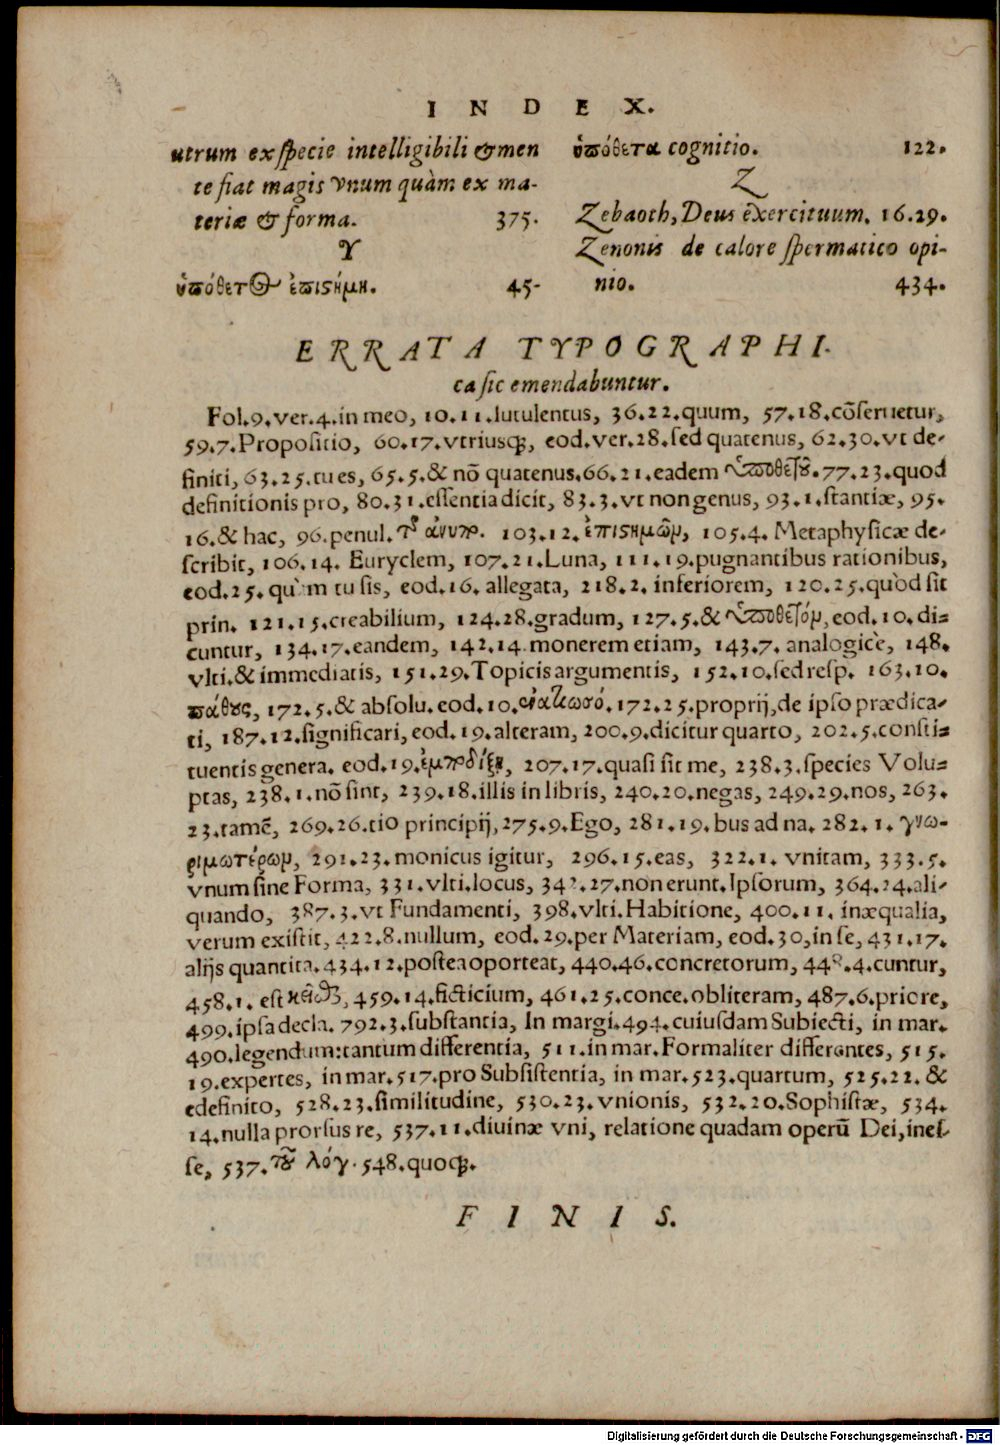 INDEX.
utrum ex specie intelligibili & men
te fiat magis vnum quàm ex ma-
teriæ & forma. 375.
Y
ὑπόθετος ἐπιστήμη. 45-
ὑπόθετα cognitio. 122.
Z
Zebaoth, Deus exercituum. 16.29.
Zenonis de calore spermatico opi-
nio. 434.
ERRATA TYPOGRAPHI.
ca sic emendabuntur.
Fol.9.ver.4.in meo, 10.11.lutulentus, 36.22.quum, 57.18.cõseruetur,
59.7.Propositio, 60.17.vtriusq;, eod.ver.28.sed quatenus, 62.30.vt de-
finiti, 63.25.tu es, 65.5.& nõ quatenus.66.21.eadem 77.23.quod
definitionis pro, 80.31.essentia dicit, 83.3.vt non genus, 93.1.stantiæ, 95.
16.& hac, 96.penul. ἀνυπ. 103.12.ἐπιστημῶν, 105.4. Metaphysicæ de-
scribit, 106.14. Euryclem, 107.21.Luna, 111.19.pugnantibus rationibus,
eod.25. quàm tu sis, eod.16. allegata, 218.2. inferiorem, 120.25.quòd sit
prin. 121.15.creabilium, 124.28.gradum, 127.5.& eod.10.di=
cuntur, 134.17.eandem, 142.14.monerem etiam, 143.7. analogicè, 148.
vlti.& immediatis, 151.29.Topicis argumentis, 152.10.sed resp. 163.10.
πάθους, 172.5.& absolu.eod.10. 172.25.proprij,de ipso prædica-
ti, 187.12.significari, eod.19.alteram, 200.9.dicitur quarto, 202.5.consti=
tuentis genera. eod.19. 207.17.quasi sit me, 238.3.species Volu=
ptas, 238.1.nõ sint, 239.18.illis in libris, 240.20.negas, 249.29.nos, 263.
23.tamẽ, 269.26.tio principij, 275.9.Ego, 281.19.bus ad na. 282.1. γνω-
ριμωτέρων, 291.23.monicus igitur, 296.15.eas, 322.1. vnitam, 333.5.
vnum sine Forma, 331.vlti.locus, 342.27.non erunt.Ipsorum, 364.24.ali-
quando, 387.3.vt Fundamenti, 398.vlti.Habitione, 400.11. inæqualia,
verum existit, 422.8.nullum, eod.29.per Materiam, eod.30,in se, 431.17.
alijs quantita.434.12.postea oporteat, 440.46.concretorum, 448.4.cuntur,
458.1. est 459.14.ficticium, 461.25.conce.obliteram, 487.6.priore,
499.ipsa decla. 792.3.substantia, In margi.494.cuiusdam Subiecti, in mar.
490.legendum:tantum differentia, 511.in mar.Formaliter differentes, 515.
19.expertes, in mar.517.pro Subsistentia, in mar.523.quartum, 525.22.&
edefinito, 528.23.similitudine, 530.23.vnionis, 532.20.Sophistæ, 534.
14.nulla prorsus re, 537.11.diuinæ vni, relatione quadam operũ Dei, ines-
se, 537.τοῦ λόγ. 548.quoq;.
FINIS.
Digitalisierung gefördert durch die Deutsche Forschungsgemeinschaft - DFG